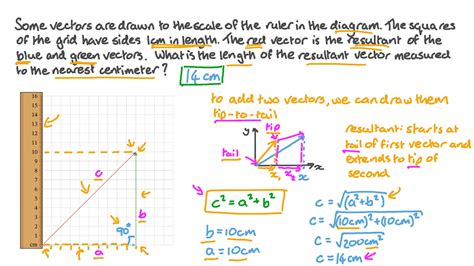 Some vectors are drawn to the scale of the ruler in the diagram. The squares
of the grid have sides 1cm in length. The red vector is the resultant of the
blue and green vectors. What is the length of the resultant vector measured
to the nearest centimeter? 14 cm
16
15
14
13
12
11
10
9
8
7
6
5
4
3
2
1
cm
c
b
90°
a
to add two vectors, we can draw them
tip-to-tail
y
tip
tail
x₁ x₂ x
resultant: starts at
tail of first vector and
extends to tip of
second
c² = a² + b²
b = 10cm
a = 10cm
c = √(a²+b²)
c = √(10cm)²+(10cm)²
c = √200cm²
c = 14cm